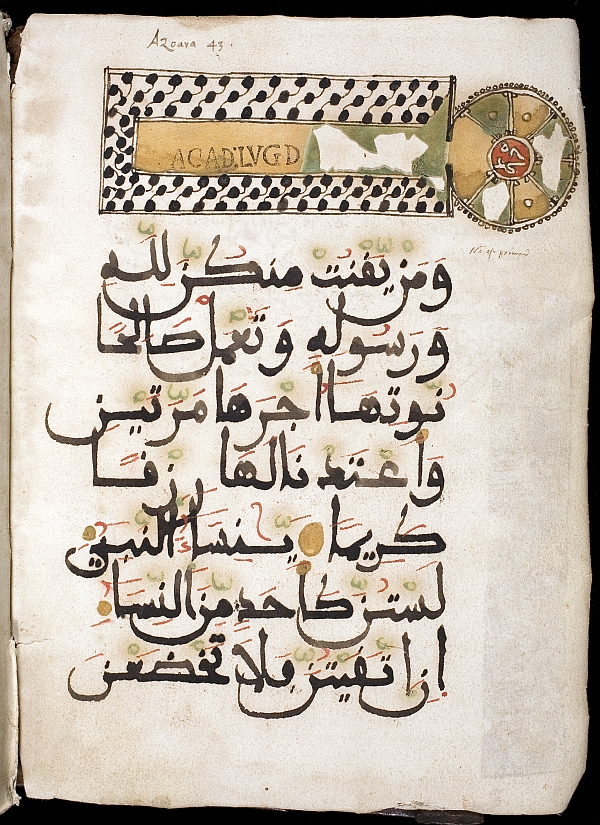 Azoara 43.
ACAD. LVGD
وَمَنْ يَقْنُتْ مِنكُنَّ لِلهِ
وَرَسُولِهِ وَتَعْمَلْ صَالِحًا
نُّوتِهَا أَجْرَهَا مَرَّتَيْنِ
وَأَعْتَدْنَا لَهَا رِزْقًا
كَرِيمًا يَنِسَاءَ النَّبِيءِ
لَسْتُنَّ كَأَحَدٍ مِنَ النِّسَاءِ
إِنِ اتَّقَيْتُنَّ فَلاَ تَخْضَعْنَ